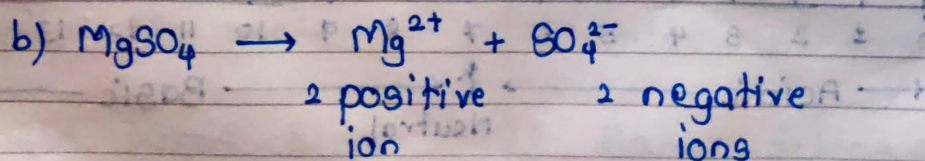 b) MgSO₄ → Mg²⁺ + SO₄²⁻
2 positive 2 negative
ion ions